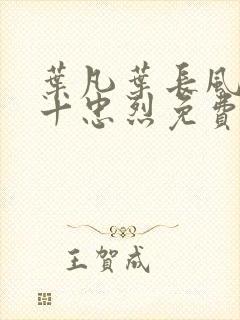 葉凡葉長風
十忠烈免費
王賀成